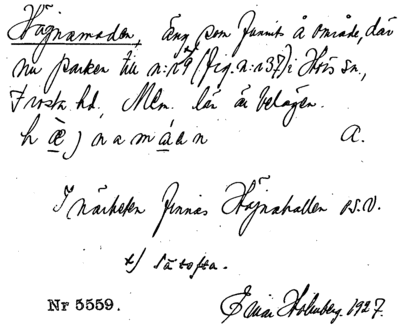 Högnamaden, äng som funnits å område, där
nu parken till n:r 9 (fig. n:r 37) i Hörs sn.,
Frosta hd, Mlm. län är belägen.
h æ j n a m á a n a.
I närheten finnas Högnahallen o.s.v.
x) Sätofta.
Nr 5559. Ewin Holmberg. 1927.